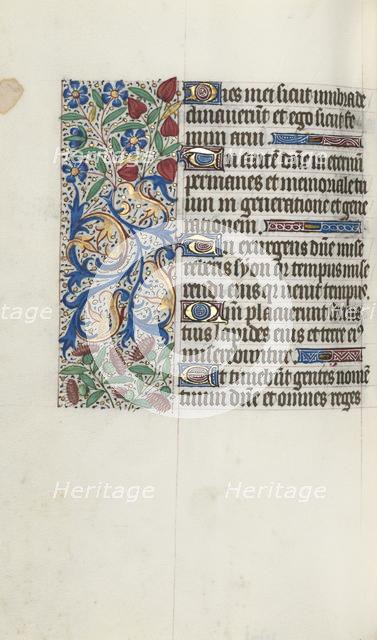 Dies mei sicut umbra de
clinaverunt et ego sicut fe
num arui
Tu autē dn̄e in eternū
permanes et memoriale tu
um in generatione et gene
rationem
Tu exurgens dn̄e mise
reberis syon qr tempus mise
rendi eius qr venit tempus
Qm̄ placuerunt servis
tuis lapides eius et terre eiꝰ
miserebitur
Et timebūt gentes nomē
tuum dn̄e et omnes reges
heritage images
Heritage
Heritage
Heritage
Heritage